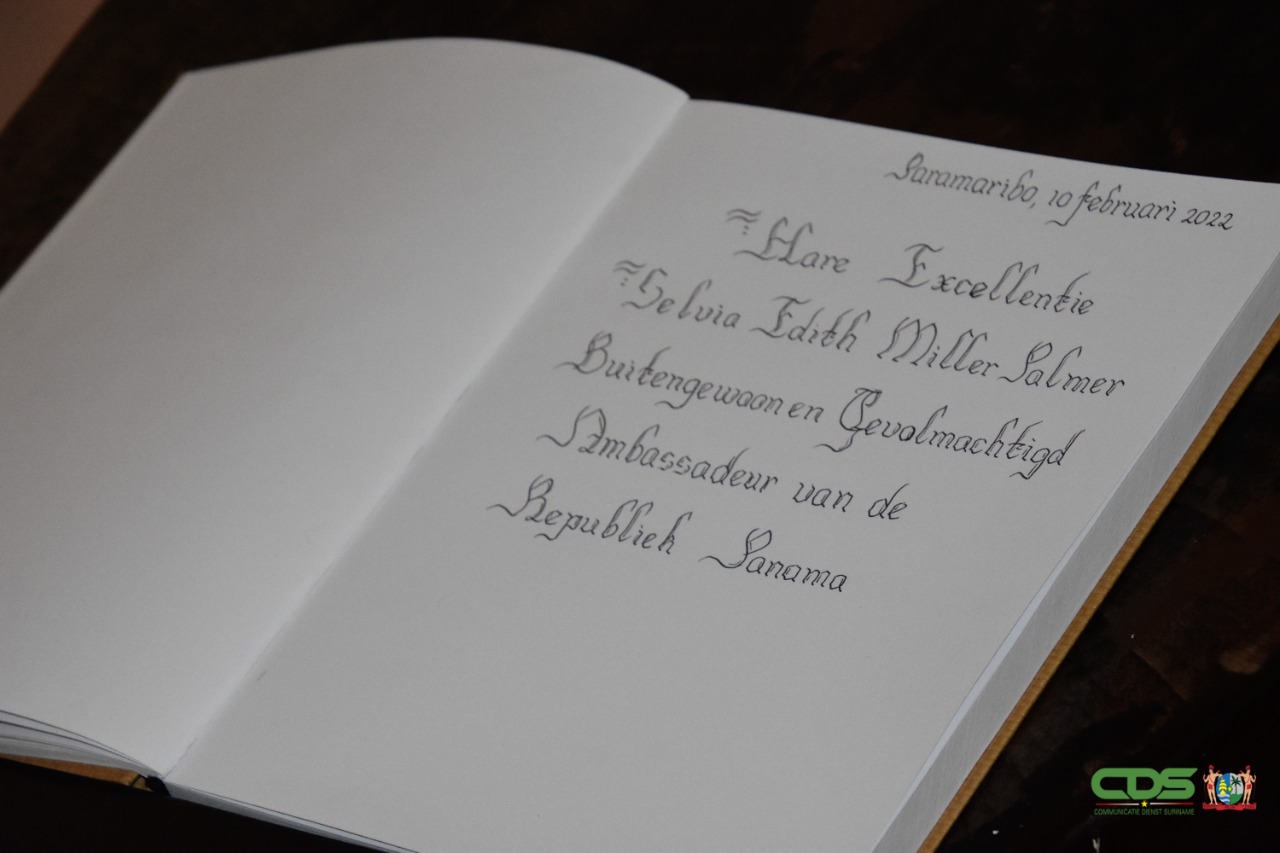 Paramaribo, 10 februari 2022
Hare Excellentie
Selvia Edith Miller Palmer
Buitengewoon en Gevolmachtigd
Ambassadeur van de
Republiek Panama
CDS
COMMUNICATIE DIENST SURINAME